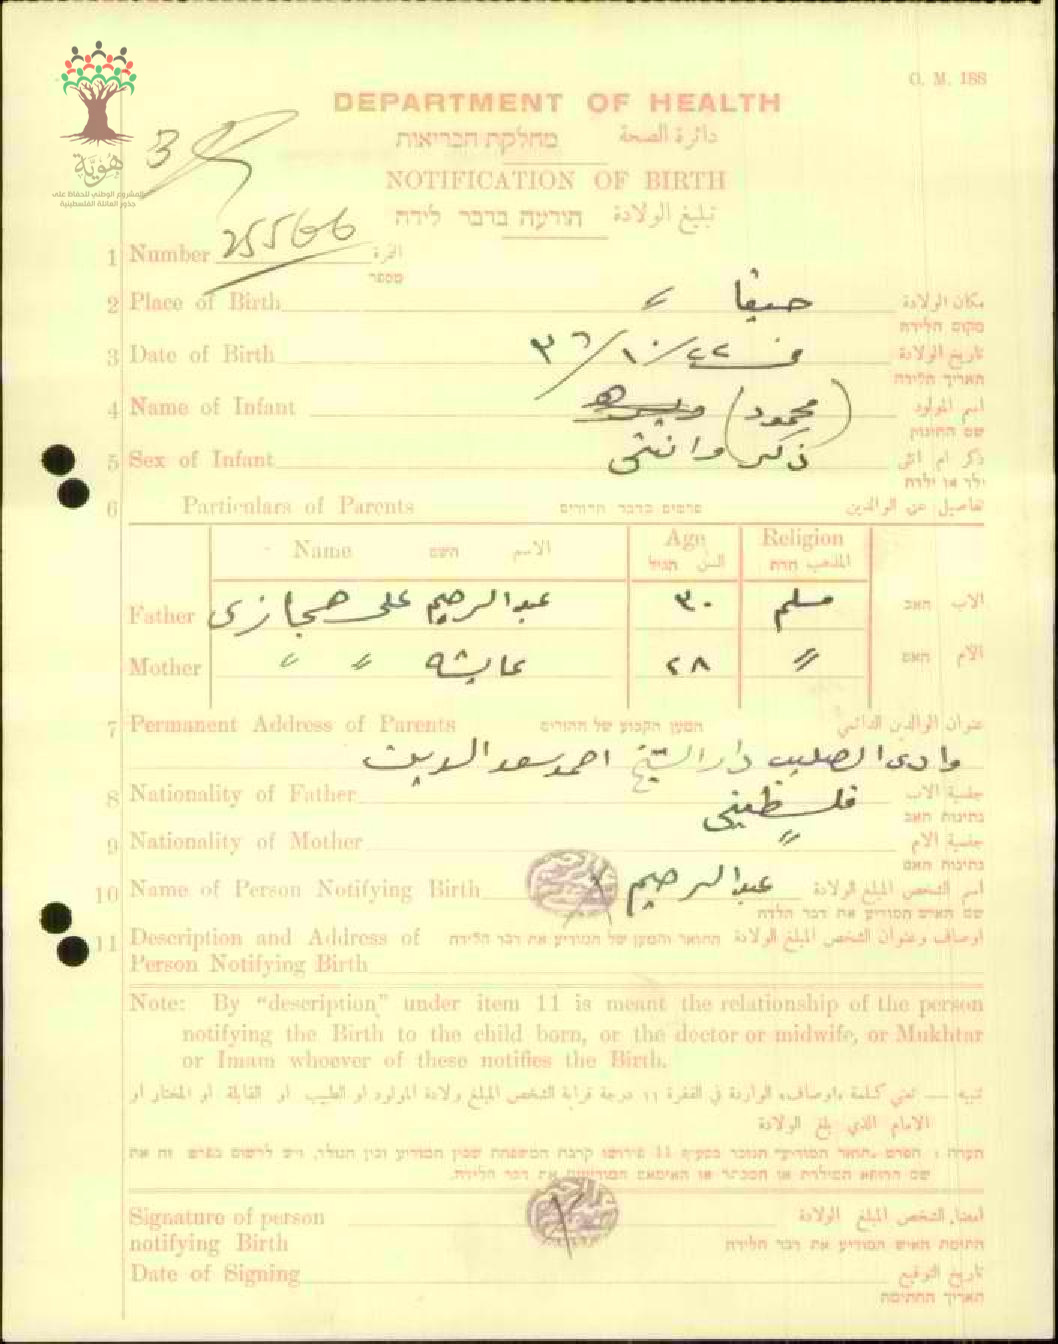 O. M. 188
هُويّة
المشروع الوطني للحفاظ على
جذور العائلة الفلسطينية
DEPARTMENT OF HEALTH
מחלקת הבריאות دائرة الصحة
3
NOTIFICATION OF BIRTH
הודעה בדבר לידה تبليغ الولادة
1 Number 25566 النمرة
מספר
2 Place of Birth حيفا مكان الولادة
מקום הלידה
3 Date of Birth في ٢٢/١٠/٣٦ تاريخ الولادة
תאריך הלידה
4 Name of Infant (محمود) اسم المولود
שם התינוק
5 Sex of Infant ذكر وانثى ذكر ام انثى
ילד או ילדה
6 Particulars of Parents פרטים בדבר ההורים تفاصيل عن الوالدين
Name השם الاسم Age السن הגיל Religion المذهب הדת
Father عبد الرحيم علي حجازي ٣٠ مسلم الاب האב
Mother عايشه " " ٢٨ " الام האם
7 Permanent Address of Parents המען הקבוע של ההורים عنوان الوالدين الدائمي
وادى الصليب دار الشيخ احمد سعد الدين
8 Nationality of Father فلسطيني جنسية الاب
נתינות האב
9 Nationality of Mother " جنسية الام
נתינות האם
10 Name of Person Notifying Birth عبد الرحيم اسم الشخص المبلغ الولادة
שם האיש המודיע את דבר הלדה
11 Description and Address of התואר והמען של המודיע את דבר הלידה اوصاف وعنوان الشخص المبلغ الولادة
Person Notifying Birth
Note: By “description” under item 11 is meant the relationship of the person
notifying the Birth to the child born, or the doctor or midwife, or Mukhtar
or Imam whoever of these notifies the Birth.
تنبيه — تعني كلمة «اوصاف» الواردة في الفقرة ١١ درجة قرابة الشخص المبلغ ولادة المولود او الطبيب او القابلة او المختار او
الامام الذي بلغ الولادة
הערה : הפרט „תואר המודיע" הנזכר בסעיף 11 פירושו קרבת המשפחה שבין המודיע ובין הנולד, ויש לרשום בפרט זה את
שם הרופא המילדת או המכתר או האימאם המודיעים את דבר הלידה.
Signature of person امضاء الشخص المبلغ الولادة
notifying Birth חתימת האיש המודיע את דבר הלידה
Date of Signing تاريخ التوقيع
תאריך החתימה